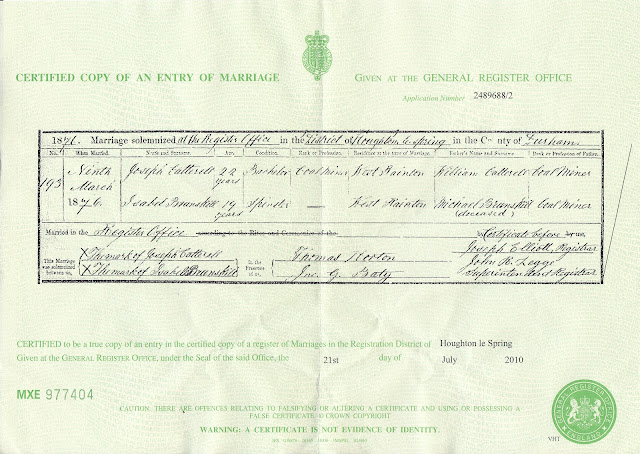 CERTIFIED COPY OF AN ENTRY OF MARRIAGE
GIVEN AT THE GENERAL REGISTER OFFICE
Application Number 2489688/2
1876. Marriage solemnized at the Register Office in the District of Houghton le Spring in the County of Durham.
No. When Married. Name and Surname. Age. Condition. Rank or Profession. Residence at the time of Marriage. Father's Name and Surname. Rank or Profession of Father.
193 Ninth March 1876 Joseph Catterell 22 years Bachelor Coal miner West Rainton William Catterell Coal Miner
Isabel Brunskill 19 years Spinster — West Rainton Michael Brunskill (deceased) Coal Miner
Married in the Register Office according to the Rites and Ceremonies of the by Certificate before me,
This Marriage was solemnized between us,
X The mark of Joseph Catterell
X The mark of Isabel Brunskill
In the Presence of us,
Thomas Norton
Jno. G. Baty
Joseph Elliott, Registrar
John R. Legge
Superintendent Registrar
CERTIFIED to be a true copy of an entry in the certified copy of a register of Marriages in the Registration District of Houghton le Spring
Given at the GENERAL REGISTER OFFICE, under the Seal of the said Office, the 21st day of July 2010
MXE 977404
CAUTION: THERE ARE OFFENCES RELATING TO FALSIFYING OR ALTERING A CERTIFICATE AND USING OR POSSESSING A
FALSE CERTIFICATE © CROWN COPYRIGHT
WARNING: A CERTIFICATE IS NOT EVIDENCE OF IDENTITY.
GENERAL REGISTER OFFICE
ENGLAND